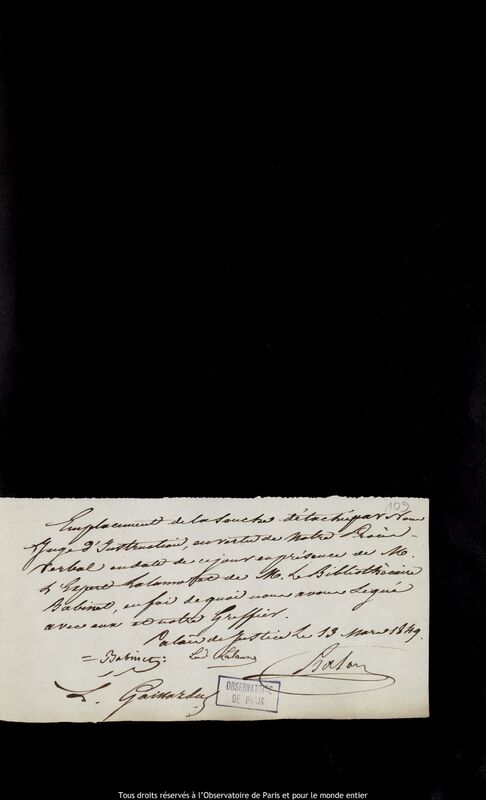 109
Emplacement de la souche détachée par Nous
Juge d'Instruction, en vertu de notre Procès-
Verbal en date de ce jour en présence de M.
L'Expert Lalanne et de M. Le Bibliothécaire
Babinet, en foi de quoi nous avons signé
avec eux et notre Greffier.
Palais de Justice le 13 Mars 1849.
= Babinet = Lud Lalanne
OBSERVATOIRE
DE PARIS
Tous droits réservés à l'Observatoire de Paris et pour le monde entier